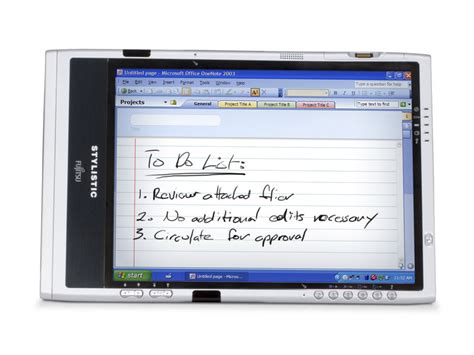 Untitled page - Microsoft Office OneNote 2003
Type a question for help
Back
Projects
General
Project Title A
Project Title B
Project Title C
Type text to find
To Do List:
1. Review attached flier
2. No additional edits necessary
3. Circulate for approval
start
Untitled page - Micros...
11:52 AM
STYLISTIC
FUJITSU